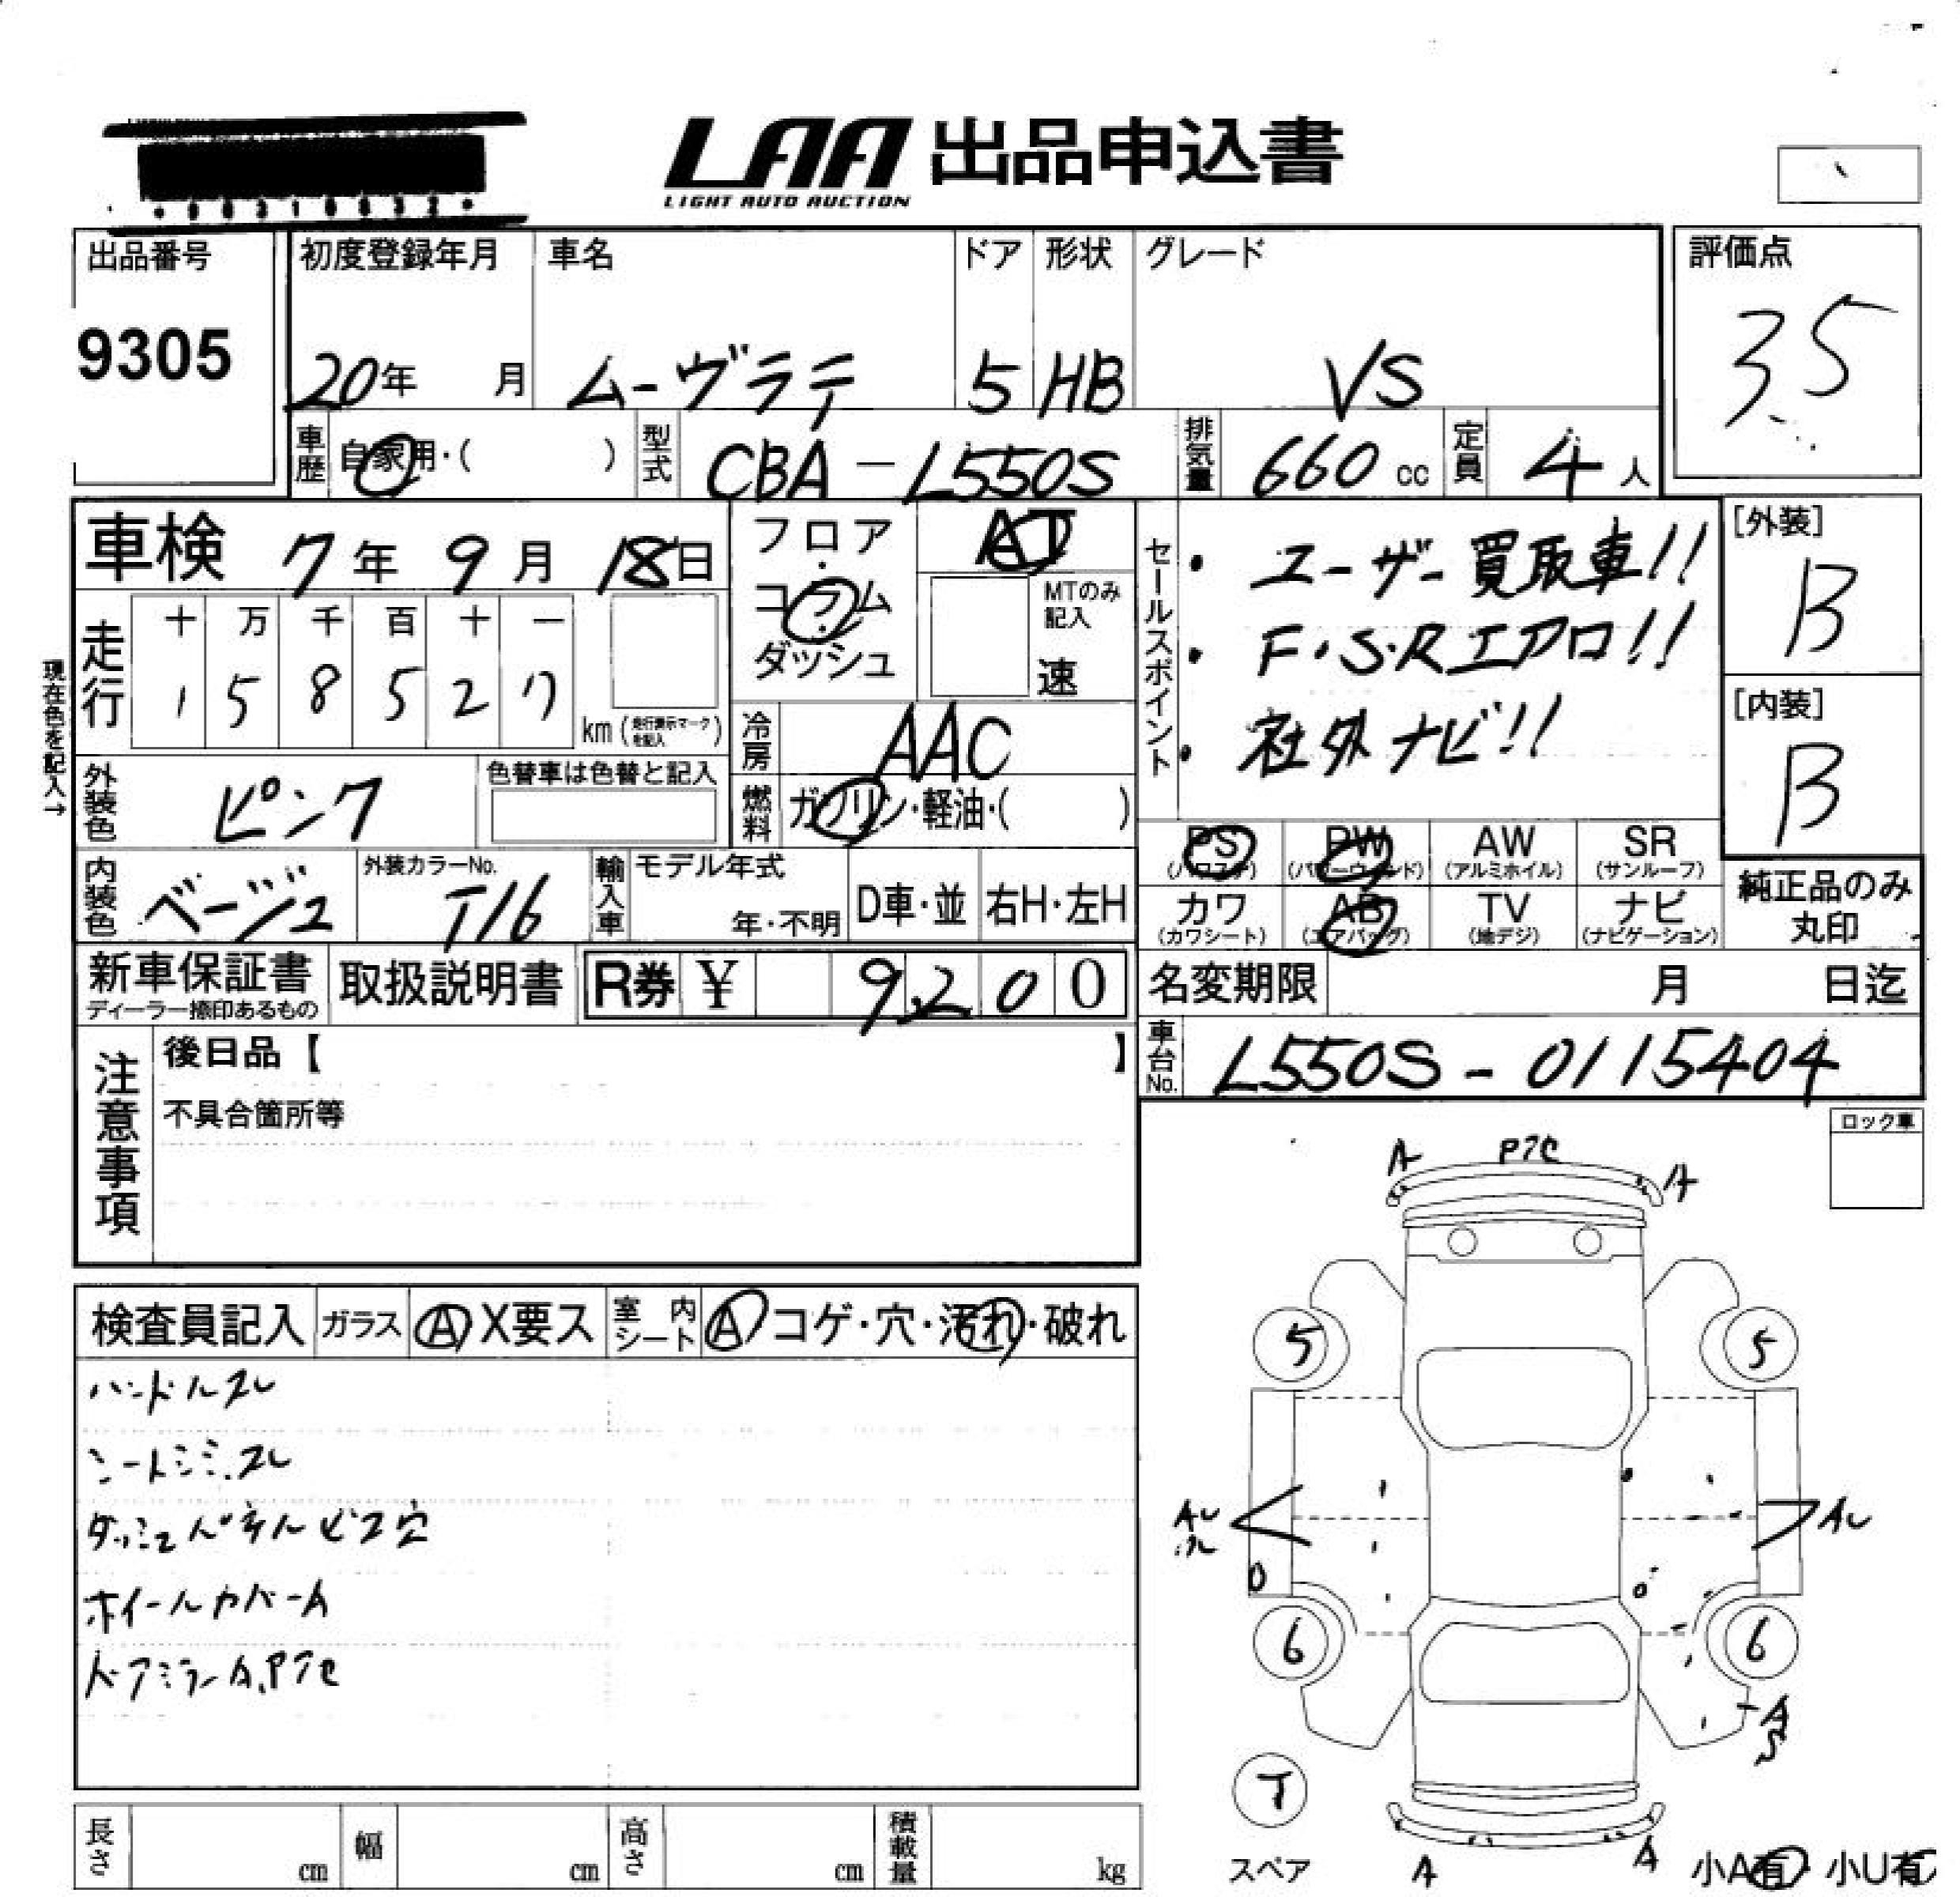 LAA 出品申込書
LIGHT AUTO AUCTION
出品番号
9305
初度登録年月
20年 月
車名
ムーヴラテ
ドア
5
形状
HB
グレード
VS
評価点
3.5
車歴 自家用・( )
型式 CBA-L550S
排気量 660 cc
定員 4 人
車検 7年 9月 18日
現在色を記入→
走行
十 万 千 百 十 一
1 5 8 5 2 7
km (走行表示マークを記入)
フロア・コラム・ダッシュ
AT
MTのみ記入
速
冷房 AAC
燃料 ガソリン・軽油・( )
セールスポイント
・ユーザー買取車!!
・F・S・Rエアロ!!
・社外ナビ!!
[外装]
B
[内装]
B
外装色 ピンク
色替車は色替と記入
内装色 ベージュ
外装カラーNo.
T16
輸入車 モデル年式
年・不明
D車・並
右H・左H
PS (パワステ)
PW (パワーウィンド)
AW (アルミホイル)
SR (サンルーフ)
カワ (カワシート)
AB (エアバッグ)
TV (地デジ)
ナビ (ナビゲーション)
純正品のみ丸印
新車保証書
ディーラー捺印あるもの
取扱説明書
R券 ¥ 9,200
名変期限 月 日迄
車台No. L550S-0115404
注意事項
後日品【 】
不具合箇所等
ロック車
検査員記入
ガラス A X要ス
室内シート A コゲ・穴・汚れ・破れ
ハンドルスレ
シートシミ.スレ
ダッシュパネルビス穴
ホイールカバーA
ドアミラーA.Pアセ
A Pアセ A
5 5
AU AU
6 6
A
S
T
スペア
A A
小A有 小U有
長さ cm
幅 cm
高さ cm
積載量 kg